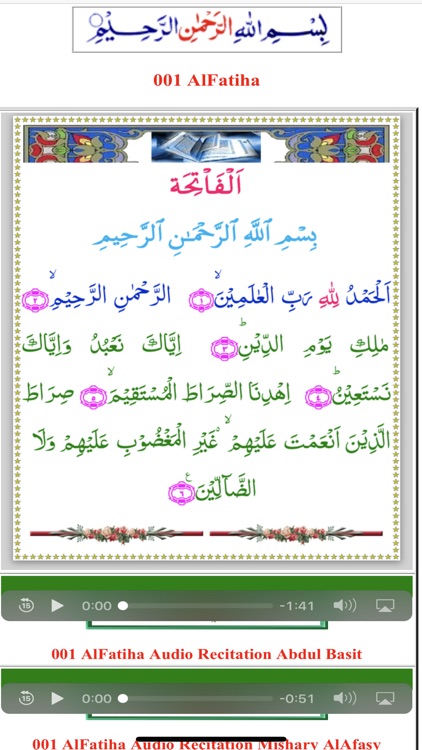 بِسْمِ اللهِ الرَّحْمٰنِ الرَّحِيْمِ
001 AlFatiha
اَلْفَاتِحَة
بِسْمِ ٱللَّهِ ٱلرَّحْمَـٰنِ ٱلرَّحِيمِ
اَلْحَمْدُ لِلّٰهِ رَبِّ الْعٰلَمِيْنَۙ ﴿۱﴾ الرَّحْمٰنِ الرَّحِيْمِۙ ﴿۲﴾
مٰلِكِ يَوْمِ الدِّيْنِؕ ﴿۳﴾ اِيَّاكَ نَعْبُدُ وَاِيَّاكَ
نَسْتَعِيْنُؕ ﴿۴﴾ اِهْدِنَا الصِّرَاطَ الْمُسْتَقِيْمَۙ ﴿۵﴾ صِرَاطَ
الَّذِيْنَ اَنْعَمْتَ عَلَيْهِمْ ۙ غَيْرِ الْمَغْضُوْبِ عَلَيْهِمْ وَلَا
الضَّآلِّيْنَ ﴿۶﴾
15 0:00 -1:41
001 AlFatiha Audio Recitation Abdul Basit
15 0:00 -0:51
001 AlFatiha Audio Recitation Mishary AlAfasy